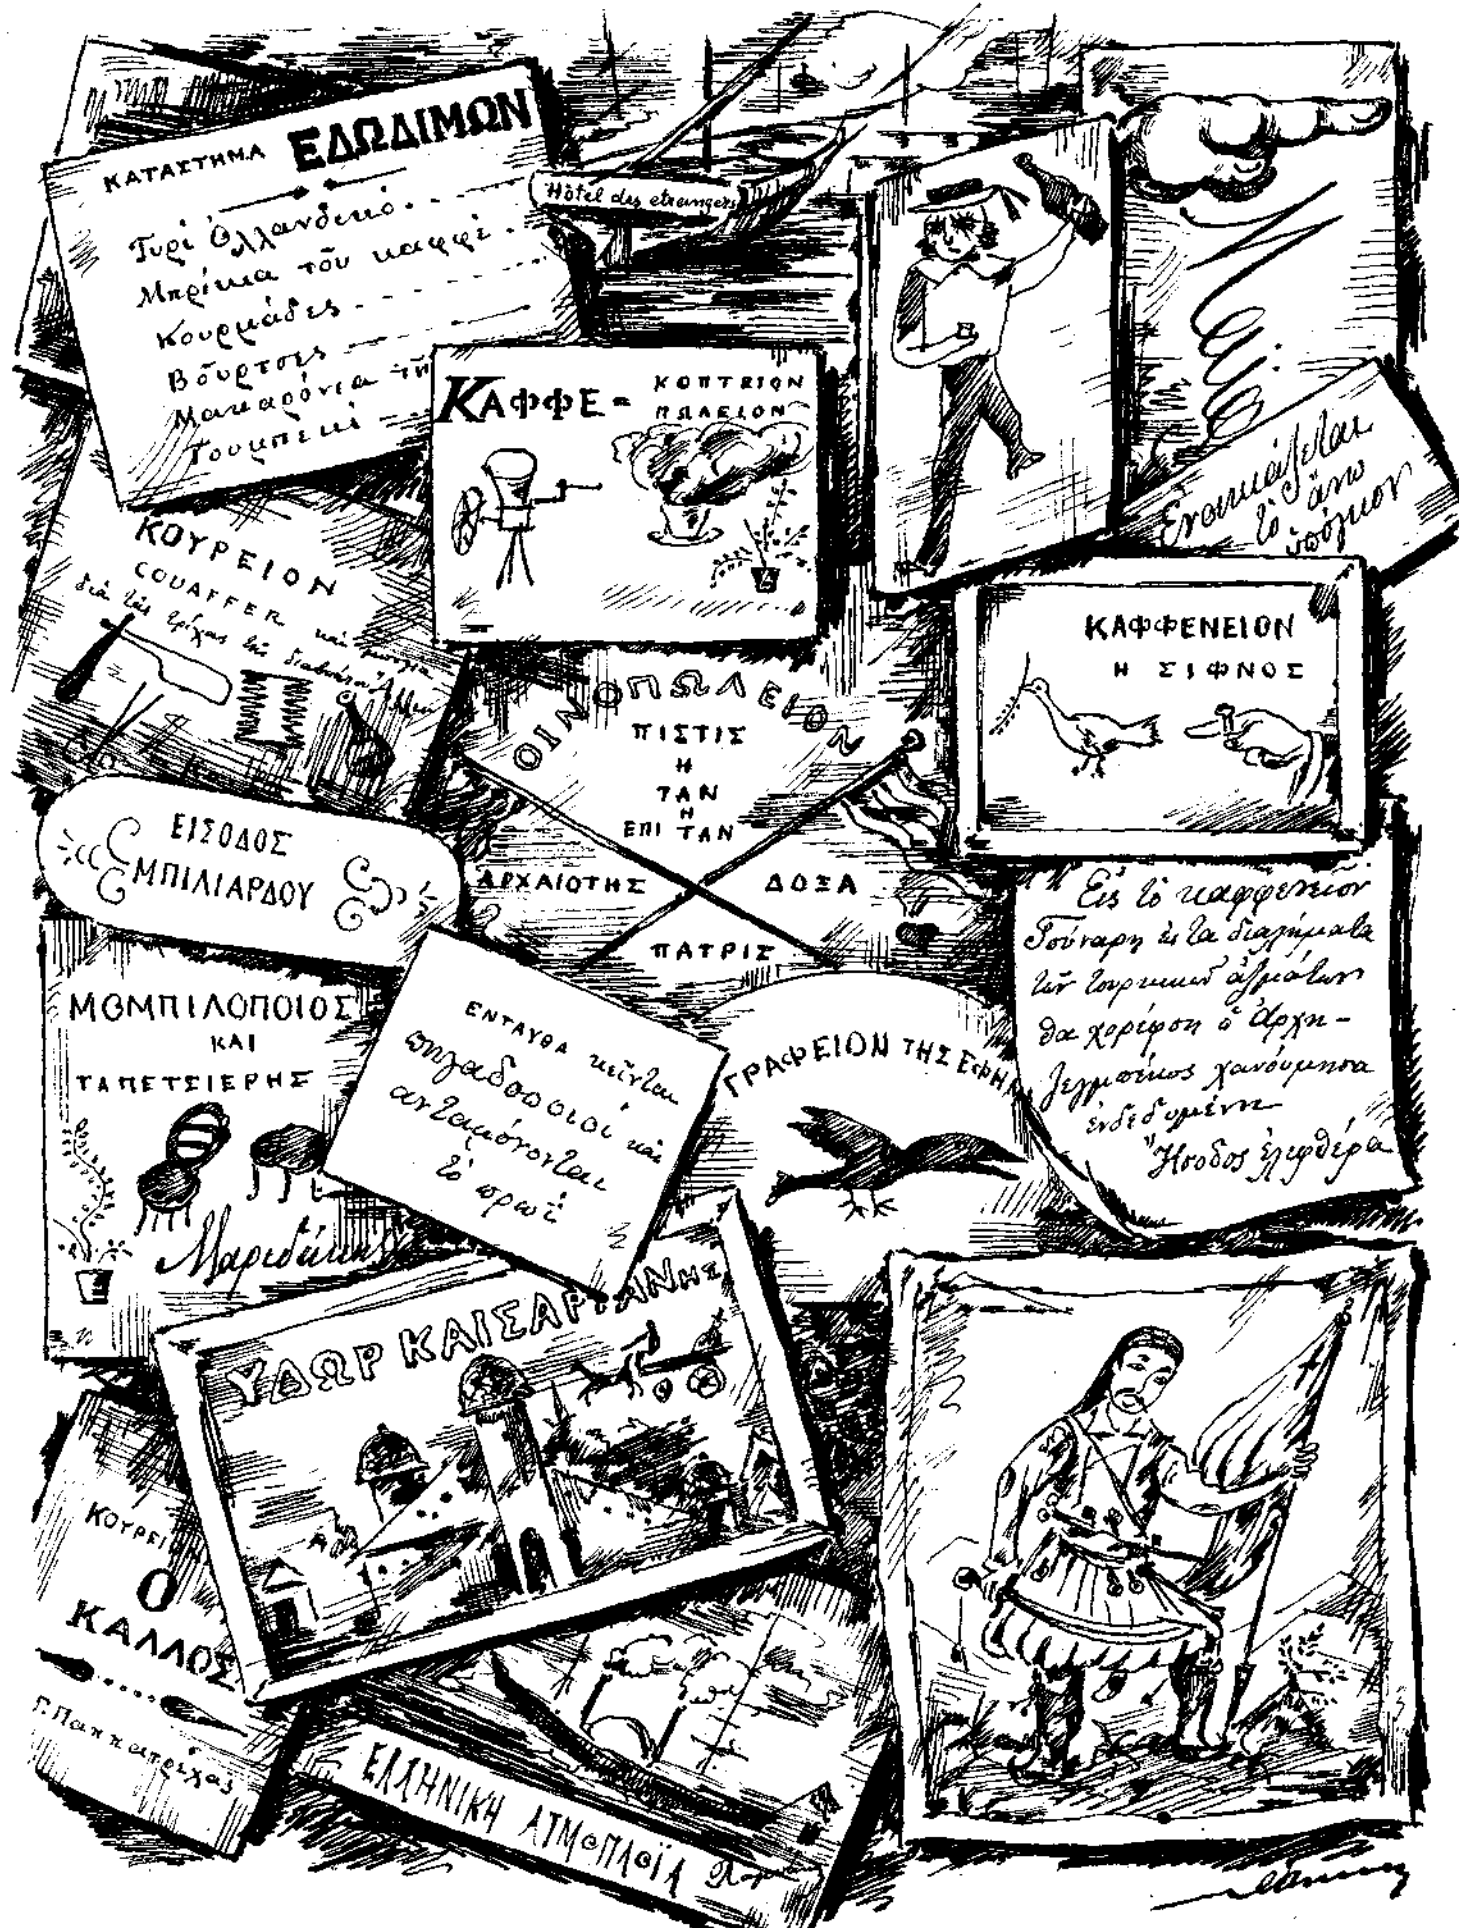 ΚΑΤΑΣΤΗΜΑ ΕΔΩΔΙΜΩΝ
Τυρί Ὁλλανδικό
Μπρίκια τοῦ καφφέ
Κουρμάδες
Βοῦρτσες
Μακαρόνια τῆ
Τουμπεκί
Hôtel des etrangers
ΚΑΦΦΕ=
ΚΟΠΤΕΙΟΝ
ΠΩΛΕΙΟΝ
Ἐνοικιάζεται
τὸ ἄνω
ὑπόγιον
ΚΟΥΡΕΙΟΝ
COUAFFER καὶ μπογιά
διὰ τὰς τρίχας τῆς
ΚΑΦΦΕΝΕΙΟΝ
Η ΣΙΦΝΟΣ
ΟΙΝΟΠΩΛΕΙΟΝ
ΠΙΣΤΙΣ
Η
ΤΑΝ
Η
ΕΠΙ ΤΑΝ
ΑΡΧΑΙΟΤΗΣ
ΔΟΞΑ
ΠΑΤΡΙΣ
ΕΙΣΟΔΟΣ
ΜΠΙΛΙΑΡΔΟΥ
Εἰς τὸ καφφενεῖον
Γούναρη εἰς τα διαλήματα
τῶν τουρκικῶν ἀσμάτων
θα χορέψοη ἡ Ἀρχη-
χανούμησα
ἐνδεδυμένη
Ἤσοδος ἐλεφθέρα
ΜΟΜΠΙΛΟΠΟΙΟΣ
ΚΑΙ
ΤΑΠΕΤΣΙΕΡΗΣ
Μαριδάκη
ΕΝΤΑΥΘΑ κεῖνται
πηγαδοσιοί καὶ
ανταμόνονται
τὸ πρωΐ
ΓΡΑΦΕΙΟΝ ΤΗΣ ΕΦΗΜ
ΥΔΩΡ ΚΑΙΣΑΡΙΑΝΗΣ
ΚΟΥΡΕΙΟΝ
Ο
ΚΑΛΛΟΣ
Γ. Παππατρίχας
ΕΛΛΗΝΙΚΗ ΑΤΜΟΠΛΟΪΑ